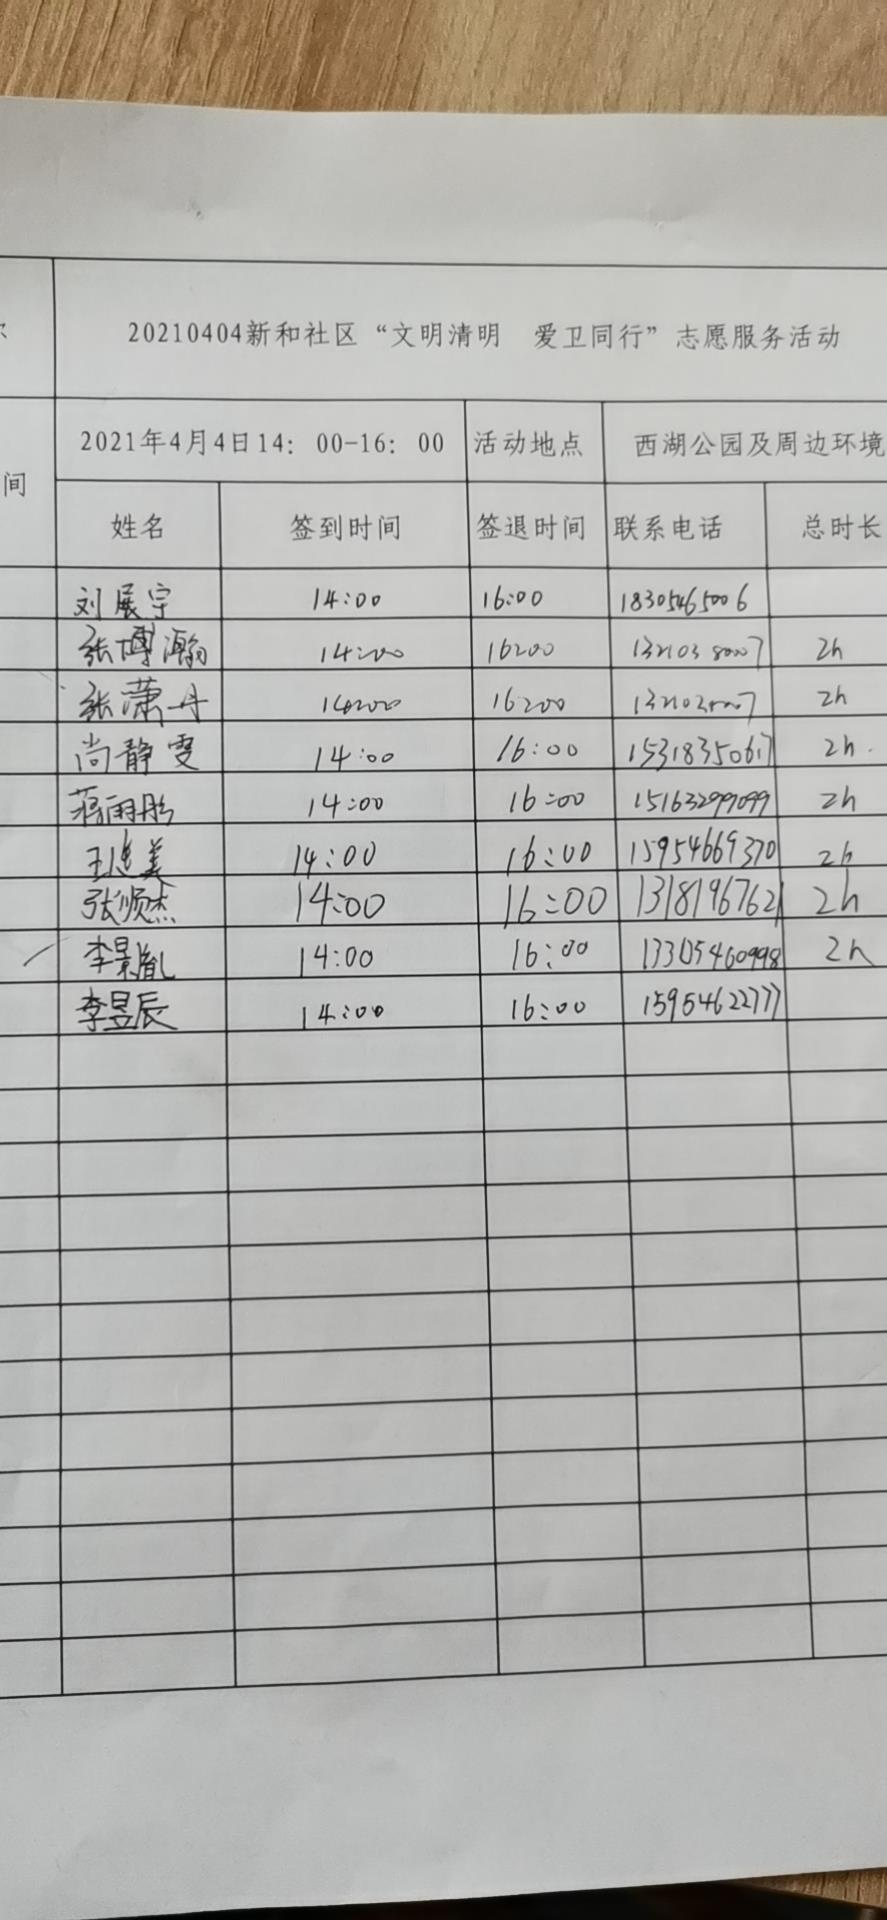 20210404新和社区“文明清明 爱卫同行”志愿服务活动
间 2021年4月4日14：00-16：00 活动地点 西湖公园及周边环境
姓名 签到时间 签退时间 联系电话 总时长
刘展宇 14:00 16:00 18305465006
张博瀚 14:00 16:00 2h
张潇丹 14:00 16:00 2h
尚静雯 14:00 16:00 15318350617 2h
蒋雨彤 14:00 16:00 15163299099 2h
王连美 14:00 16:00 15954669370 2h
张顺杰 14:00 16:00 13181967621 2h
李景胤 14:00 16:00 13305460998 2h
李昱辰 14:00 16:00 15954622777